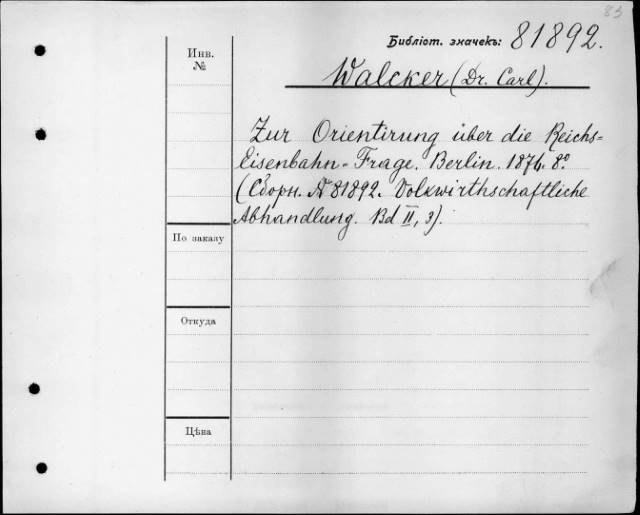 83
Библіот. значекъ: 81892.
Инв.
№
Walcker (Dr. Carl).
Zur Orientirung über die Reichs=
Eisenbahn-Frage. Berlin. 1876. 8º
(Сборн. № 81892. Volkwirthschaftliche
Abhandlung. Bd II, 3).
По заказу
Откуда
Цѣна